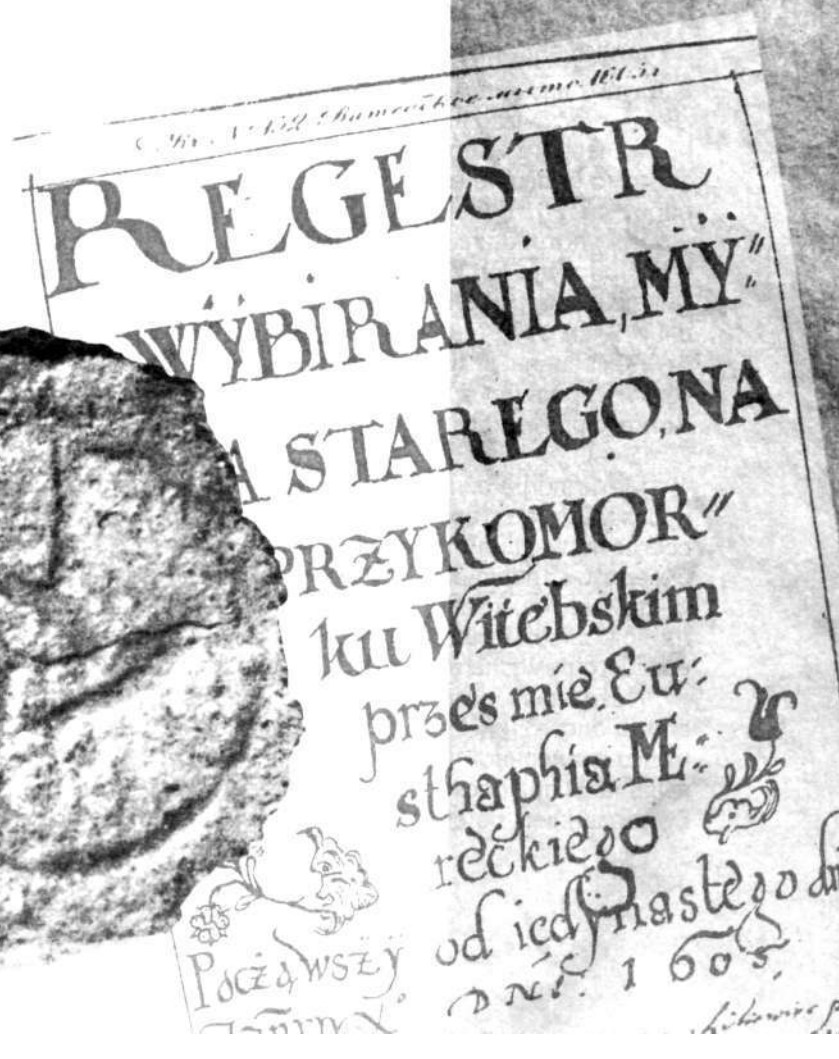 REGESTR
WŸBIRANIA, MŸ〃
A STAREGO, NA
PRZYKOMOR〃
ku Witebskim
przes mie Eu:
sthaphia ME:
reckiego
od iedynastego
Począwszÿ
DNI. 1605.